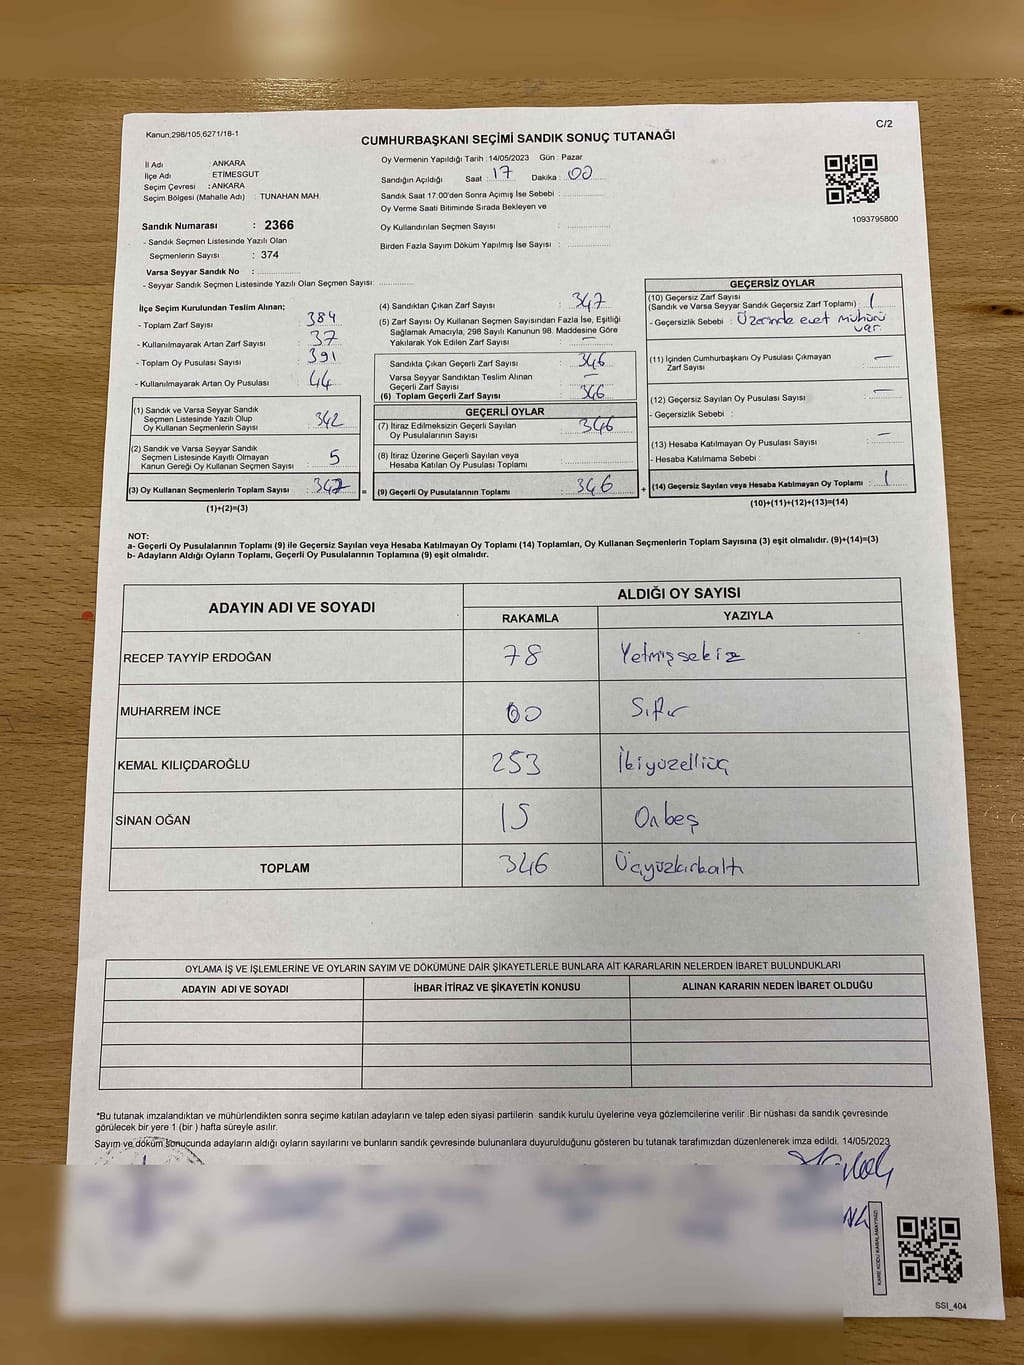 Kanun,298/105,6271/18-1
C/2
CUMHURBAŞKANI SEÇİMİ SANDIK SONUÇ TUTANAĞI
İl Adı : ANKARA
İlçe Adı : ETİMESGUT
Seçim Çevresi : ANKARA
Seçim Bölgesi (Mahalle Adı) : TUNAHAN MAH.
Oy Vermenin Yapıldığı Tarih :14/05/2023 Gün : Pazar
Sandığın Açıldığı Saat : 17 Dakika : 00
Sandık Saat 17:00'den Sonra Açımış İse Sebebi :
Oy Verme Saati Bitiminde Sırada Bekleyen ve
Oy Kullandırılan Seçmen Sayısı :
Birden Fazla Sayım Döküm Yapılmış İse Sayısı :
1093795800
Sandık Numarası : 2366
- Sandık Seçmen Listesinde Yazılı Olan
Seçmenlerin Sayısı : 374
Varsa Seyyar Sandık No :
- Seyyar Sandık Seçmen Listesinde Yazılı Olan Seçmen Sayısı:
İlçe Seçim Kurulundan Teslim Alınan;
- Toplam Zarf Sayısı : 384
- Kullanılmayarak Artan Zarf Sayısı : 37
- Toplam Oy Pusulası Sayısı : 391
- Kullanılmayarak Artan Oy Pusulası : 44
(1) Sandık ve Varsa Seyyar Sandık
Seçmen Listesinde Yazılı Olup
Oy Kullanan Seçmenlerin Sayısı : 342
(2) Sandık ve Varsa Seyyar Sandık
Seçmen Listesinde Kayıtlı Olmayan
Kanun Gereği Oy Kullanan Seçmen Sayısı : 5
(3) Oy Kullanan Seçmenlerin Toplam Sayısı : 347 =
(1)+(2)=(3)
(4) Sandıktan Çıkan Zarf Sayısı : 347
(5) Zarf Sayısı Oy Kullanan Seçmen Sayısından Fazla İse, Eşitliği
Sağlamak Amacıyla, 298 Sayılı Kanunun 98. Maddesine Göre
Yakılarak Yok Edilen Zarf Sayısı : —
Sandıkta Çıkan Geçerli Zarf Sayısı : 346
Varsa Seyyar Sandıktan Teslim Alınan
Geçerli Zarf Sayısı : —
(6) Toplam Geçerli Zarf Sayısı : 346
GEÇERLİ OYLAR
(7) İtiraz Edilmeksizin Geçerli Sayılan
Oy Pusulalarının Sayısı : 346
(8) İtiraz Üzerine Geçerli Sayılan veya
Hesaba Katılan Oy Pusulası Toplamı :
(9) Geçerli Oy Pusulalarının Toplamı : 346 +
GEÇERSİZ OYLAR
(10) Geçersiz Zarf Sayısı
(Sandık ve Varsa Seyyar Sandık Geçersiz Zarf Toplamı) : 1
- Geçersizlik Sebebi : Üzerinde evet mühürü
var.
(11) İçinden Cumhurbaşkanı Oy Pusulası Çıkmayan
Zarf Sayısı : —
(12) Geçersiz Sayılan Oy Pusulası Sayısı : —
- Geçersizlik Sebebi :
(13) Hesaba Katılmayan Oy Pusulası Sayısı : —
- Hesaba Katılmama Sebebi :
(14) Geçersiz Sayılan veya Hesaba Katılmayan Oy Toplamı : 1
(10)+(11)+(12)+(13)=(14)
NOT:
a- Geçerli Oy Pusulalarının Toplamı (9) ile Geçersiz Sayılan veya Hesaba Katılmayan Oy Toplamı (14) Toplamları, Oy Kullanan Seçmenlerin Toplam Sayısına (3) eşit olmalıdır. (9)+(14)=(3)
b- Adayların Aldığı Oyların Toplamı, Geçerli Oy Pusulalarının Toplamına (9) eşit olmalıdır.
ADAYIN ADI VE SOYADI
ALDIĞI OY SAYISI
RAKAMLA YAZIYLA
RECEP TAYYİP ERDOĞAN 78 Yetmişsekiz
MUHARREM İNCE 00 Sıfır
KEMAL KILIÇDAROĞLU 253 İkiyüzelliüç
SİNAN OĞAN 15 Onbeş
TOPLAM 346 Üçyüzkırkaltı
OYLAMA İŞ VE İŞLEMLERİNE VE OYLARIN SAYIM VE DÖKÜMÜNE DAİR ŞİKAYETLERLE BUNLARA AİT KARARLARIN NELERDEN İBARET BULUNDUKLARI
ADAYIN ADI VE SOYADI İHBAR İTİRAZ VE ŞİKAYETİN KONUSU ALINAN KARARIN NEDEN İBARET OLDUĞU
*Bu tutanak imzalandıktan ve mühürlendikten sonra seçime katılan adayların ve talep eden siyasi partilerin sandık kurulu üyelerine veya gözlemcilerine verilir .Bir nüshası da sandık çevresinde
görülecek bir yere 1 (bir ) hafta süreyle asılır.
Sayım ve döküm sonucunda adayların aldığı oyların sayılarını ve bunların sandık çevresinde bulunanlara duyurulduğunu gösteren bu tutanak tarafımızdan düzenlenerek imza edildi. 14/05/2023
KARE KODU KARALAMAYINIZ!
SSİ_404